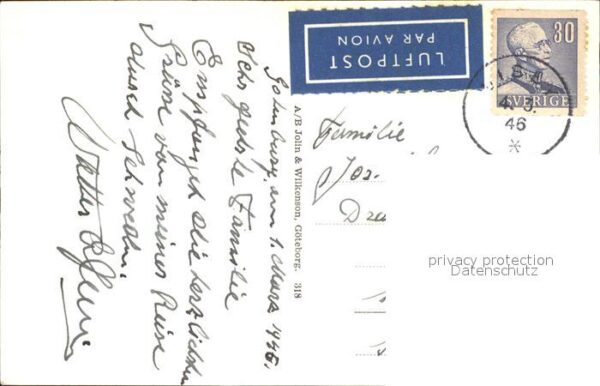 Gothenburg, am 1. März 1946.
Sehr geehrte Familie
Empfangen Sie die herzlichsten
Grüsse von meiner Reise
durch Schweden.
Walter
A/B Jolin & Wilkenson, Göteborg. 318
LUFTPOST
PAR AVION
30
SVERIGE
46
Familie
Jos.
privacy protection
Datenschutz